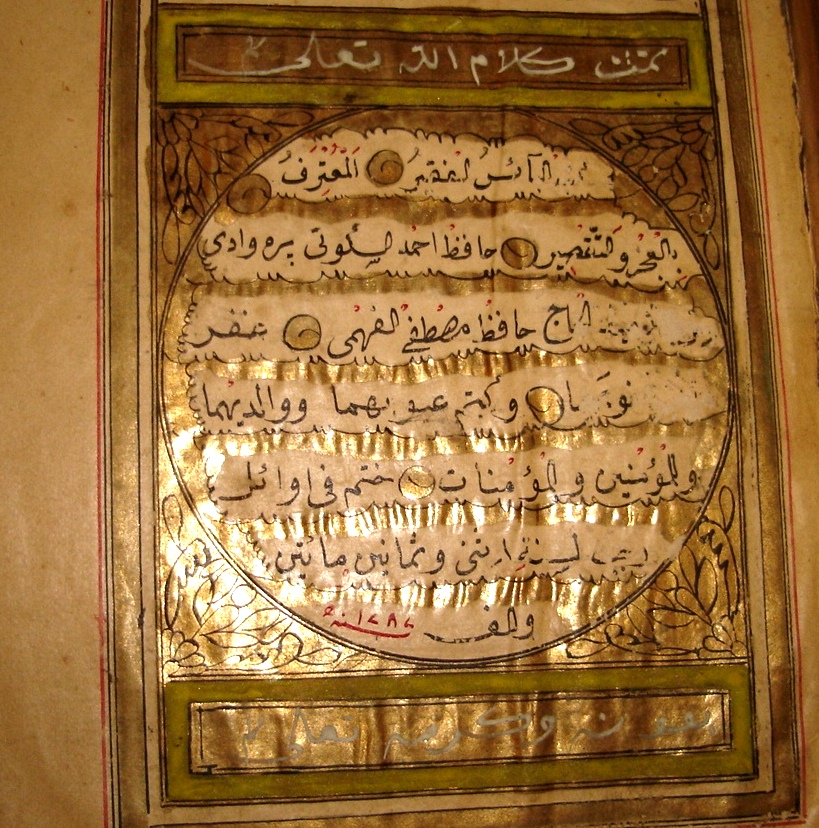 تمت كلام الله تعالى
البائسُ الفقيرُ المُعْتَرِفُ
بالعجز والتَّقصير حافظ احمد السلوتى پره وادى
الحاج حافظ مصطفى الفهمى غفر
ذنوبهما وكتم عيوبهما ووالديهما
والمؤمنين والمؤمنات ختم فى اوائل
رجب لسنة اثنى وثمانين مائتين
والف سنة ١٢٨٢
بعونه وكرمه تعالى